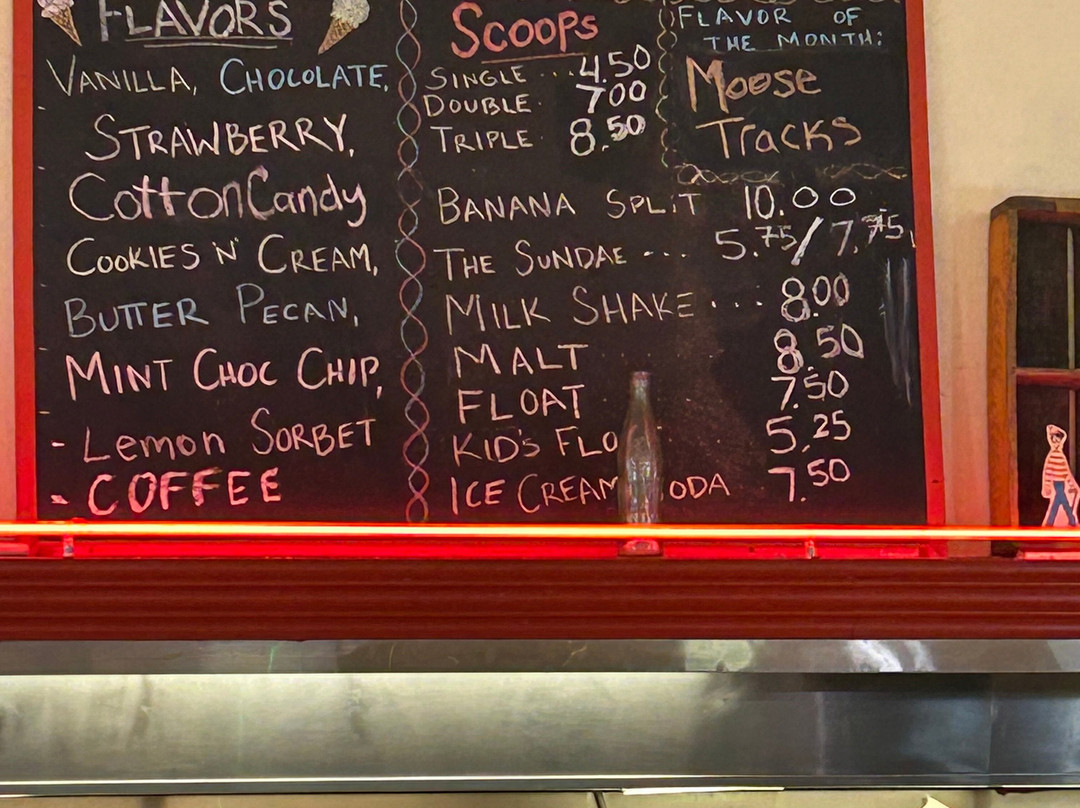 FLAVORS
VANILLA, CHOCOLATE,
STRAWBERRY,
Cotton Candy
COOKIES N' CREAM,
BUTTER PECAN,
MINT CHOC CHIP,
- Lemon SORBET
- COFFEE
SCOOPS
SINGLE ... 4.50
DOUBLE. 7.00
TRIPLE. 8.50
FLAVOR OF
THE MONTH:
Moose
Tracks
BANANA SPLIT 10.00
THE SUNDAE ... 5.75/7.75
MILK SHAKE ... 8.00
MALT 8.50
FLOAT 7.50
KID'S FLO 5.25
ICE CREAM ODA 7.50